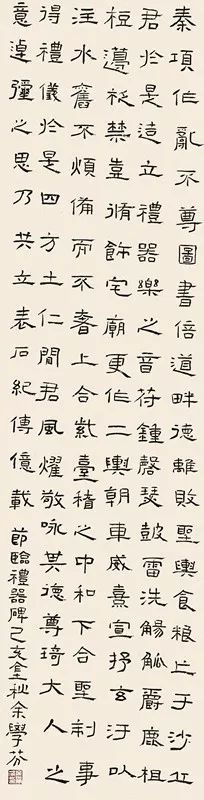 秦項作亂不尊圖書倍道畔德離敗聖輿食粮亡于沙丘
君於是造立禮器樂之音苻鍾磬瑟鼓雷洗觴觚爵鹿柤
梪籩柉禁壺脩飾宅廟更作二輿朝車威熹宣抒玄汙以
注水舊不煩備而不奢上合紫臺稽之中和下合聖制事
得禮儀於是四方士仁聞君風燿敬咏其德尊琦大人之
意逴彌之思乃共立表石紀傳億載 節臨禮器碑己亥金秋余學芬